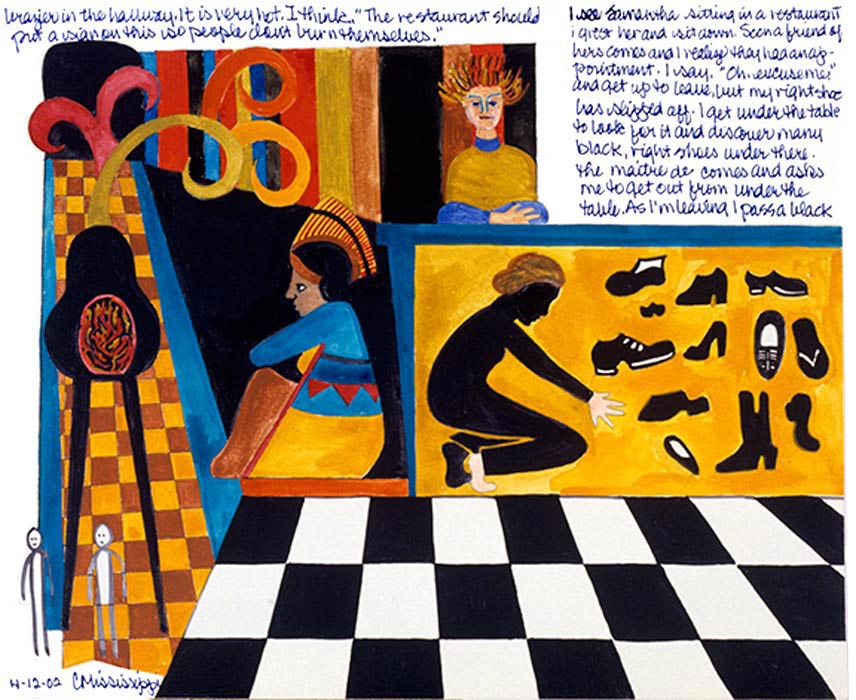 I see Samantha sitting in a restaurant
i greet her and sit down. Soon a friend of
hers comes and I realize they had an ap-
pointment. I say, "Oh, excuse me"
and get up to leave, but my right shoe
has slipped off. I get under the table
to look for it and discover many
black, right shoes under there.
the maître de comes and asks
me to get out from under the
table. As I'm leaving I pass a black
brazier in the hallway. It is very hot. I think.. "The restaurant should
put a sign on this so people don't burn themselves."
4-12-02 CMississippi